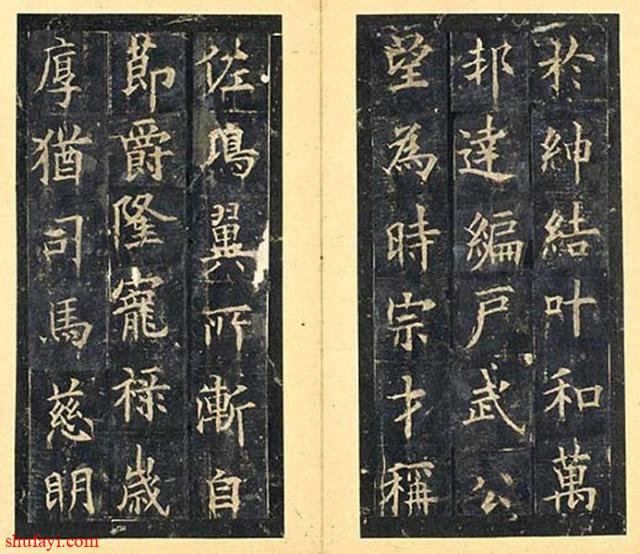 於紳結叶和萬
邦達編戶武公
望為時宗才稱
佐翼所漸自
節爵隆寵祿歲
厚猶司馬慈明
shufayi.com